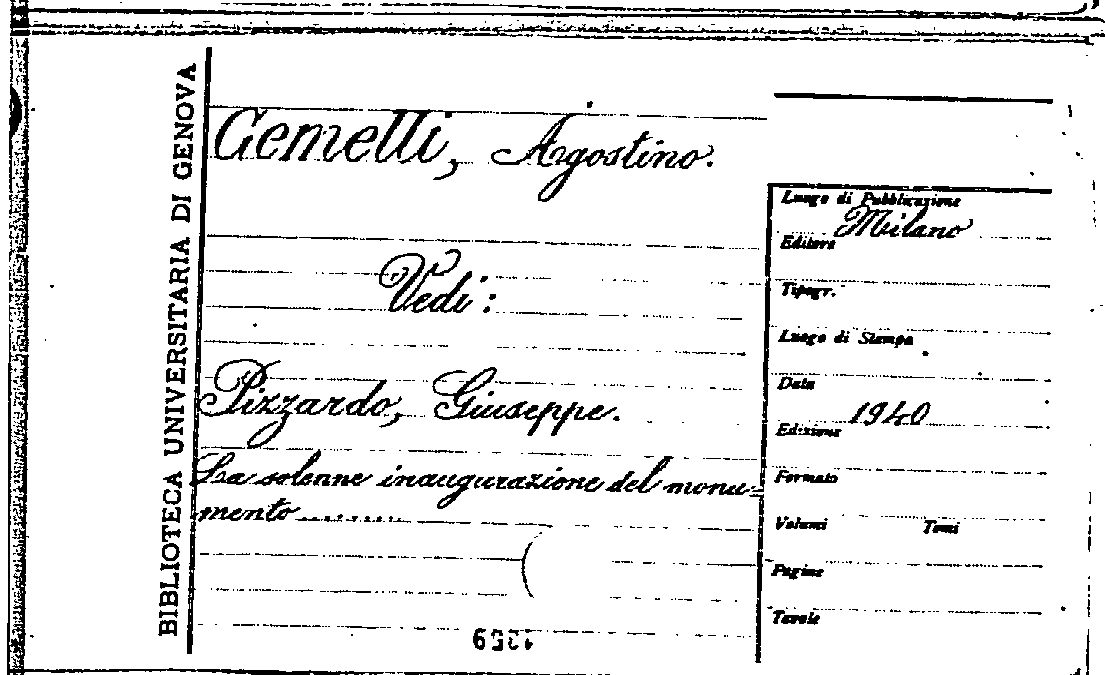 BIBLIOTECA UNIVERSITARIA DI GENOVA
Gemelli, Agostino.
Vedi:
Pizzardo, Giuseppe.
La solenne inaugurazione del monu=
mento ..........
Luogo di Pubblicazione
Milano
Editore
Tipogr.
Luogo di Stampa
Data
1940
Edizione
Formato
Volumi Tomi
Pagine
Tavole